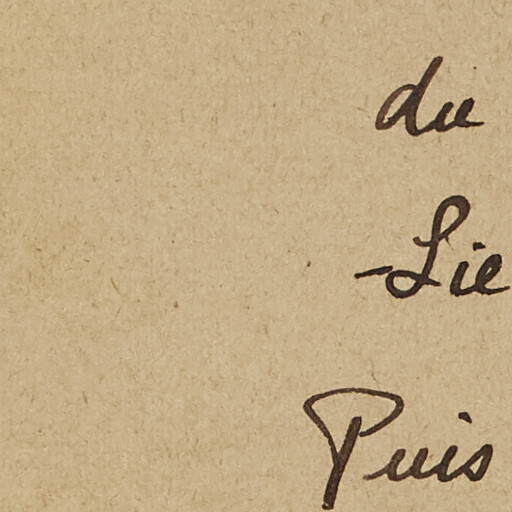 du
-Lie
Puis